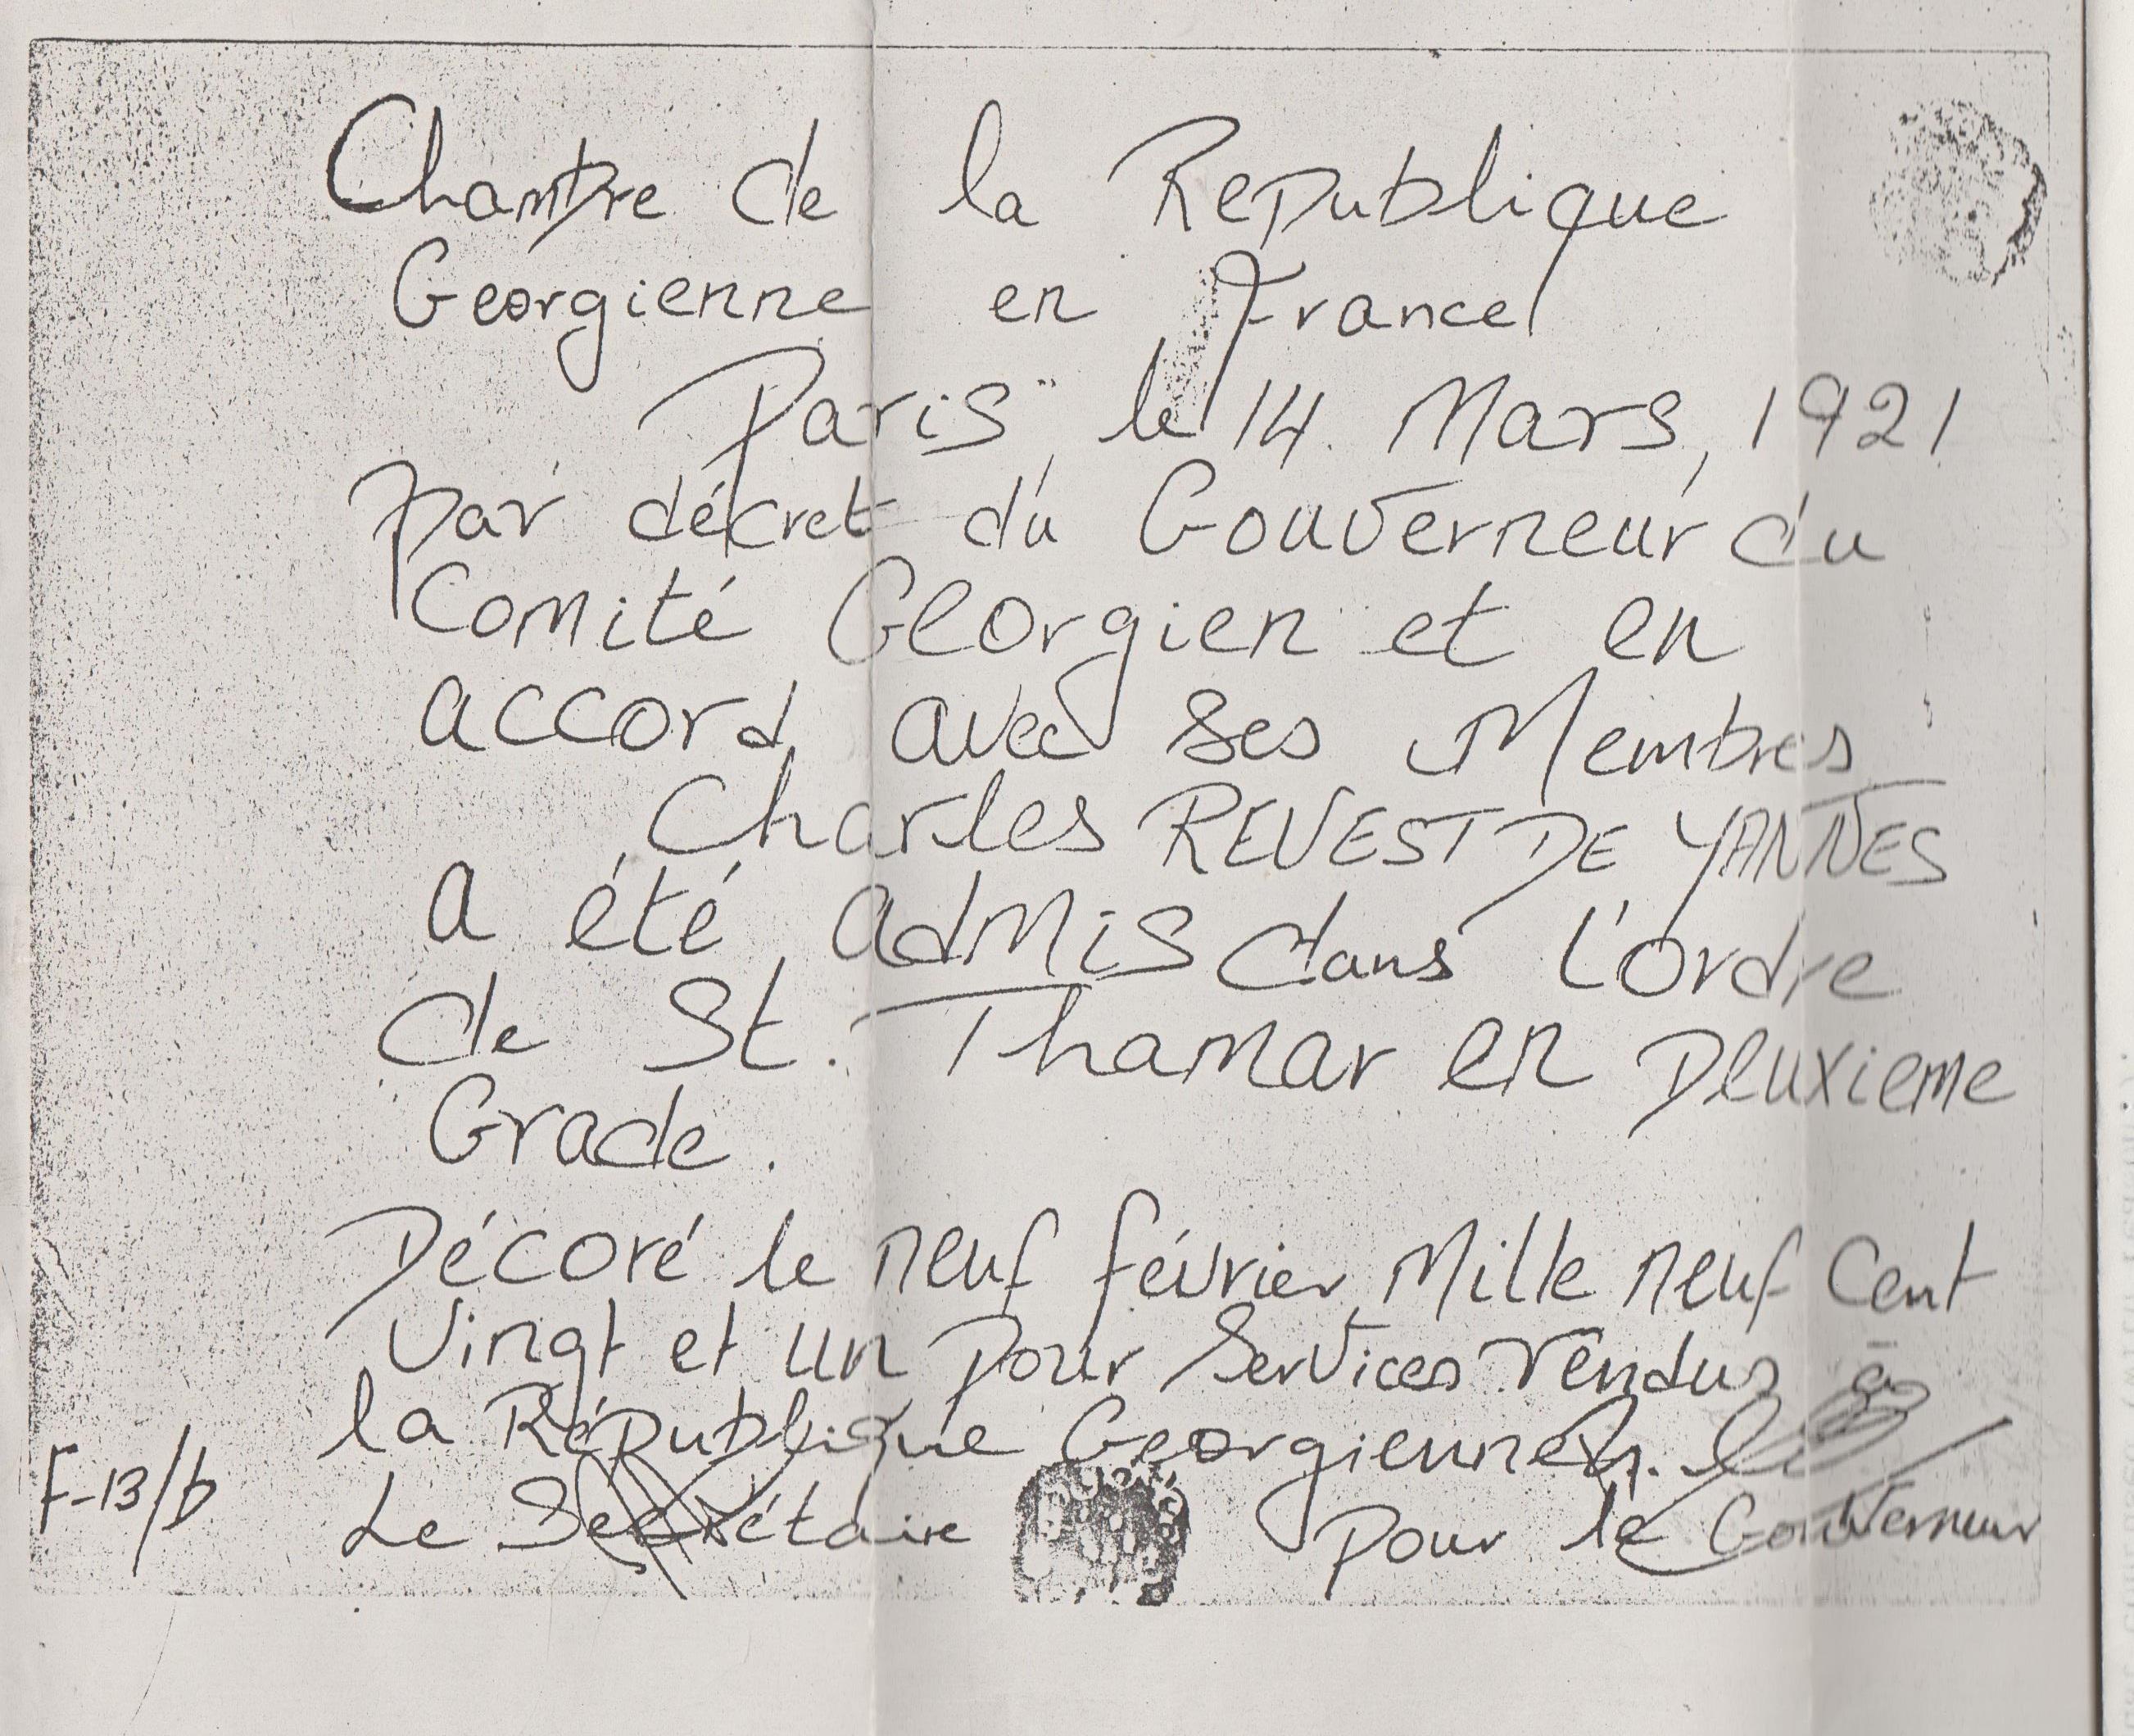 Chambre de la Republique
Georgienne en France
Paris, le 14. Mars, 1921
par décret du Gouverneur du
Comité Georgien et en
accord avec ses Membres
Charles REVEST DE YANNES
a été admis dans l'ordre
de St. Thamar en Deuxieme
Grade.
Décoré le neuf février Mille neuf Cent
Vingt et un pour Services rendus à
la République Georgienne
F-13/b
Le Secrétaire pour le Gouverneur